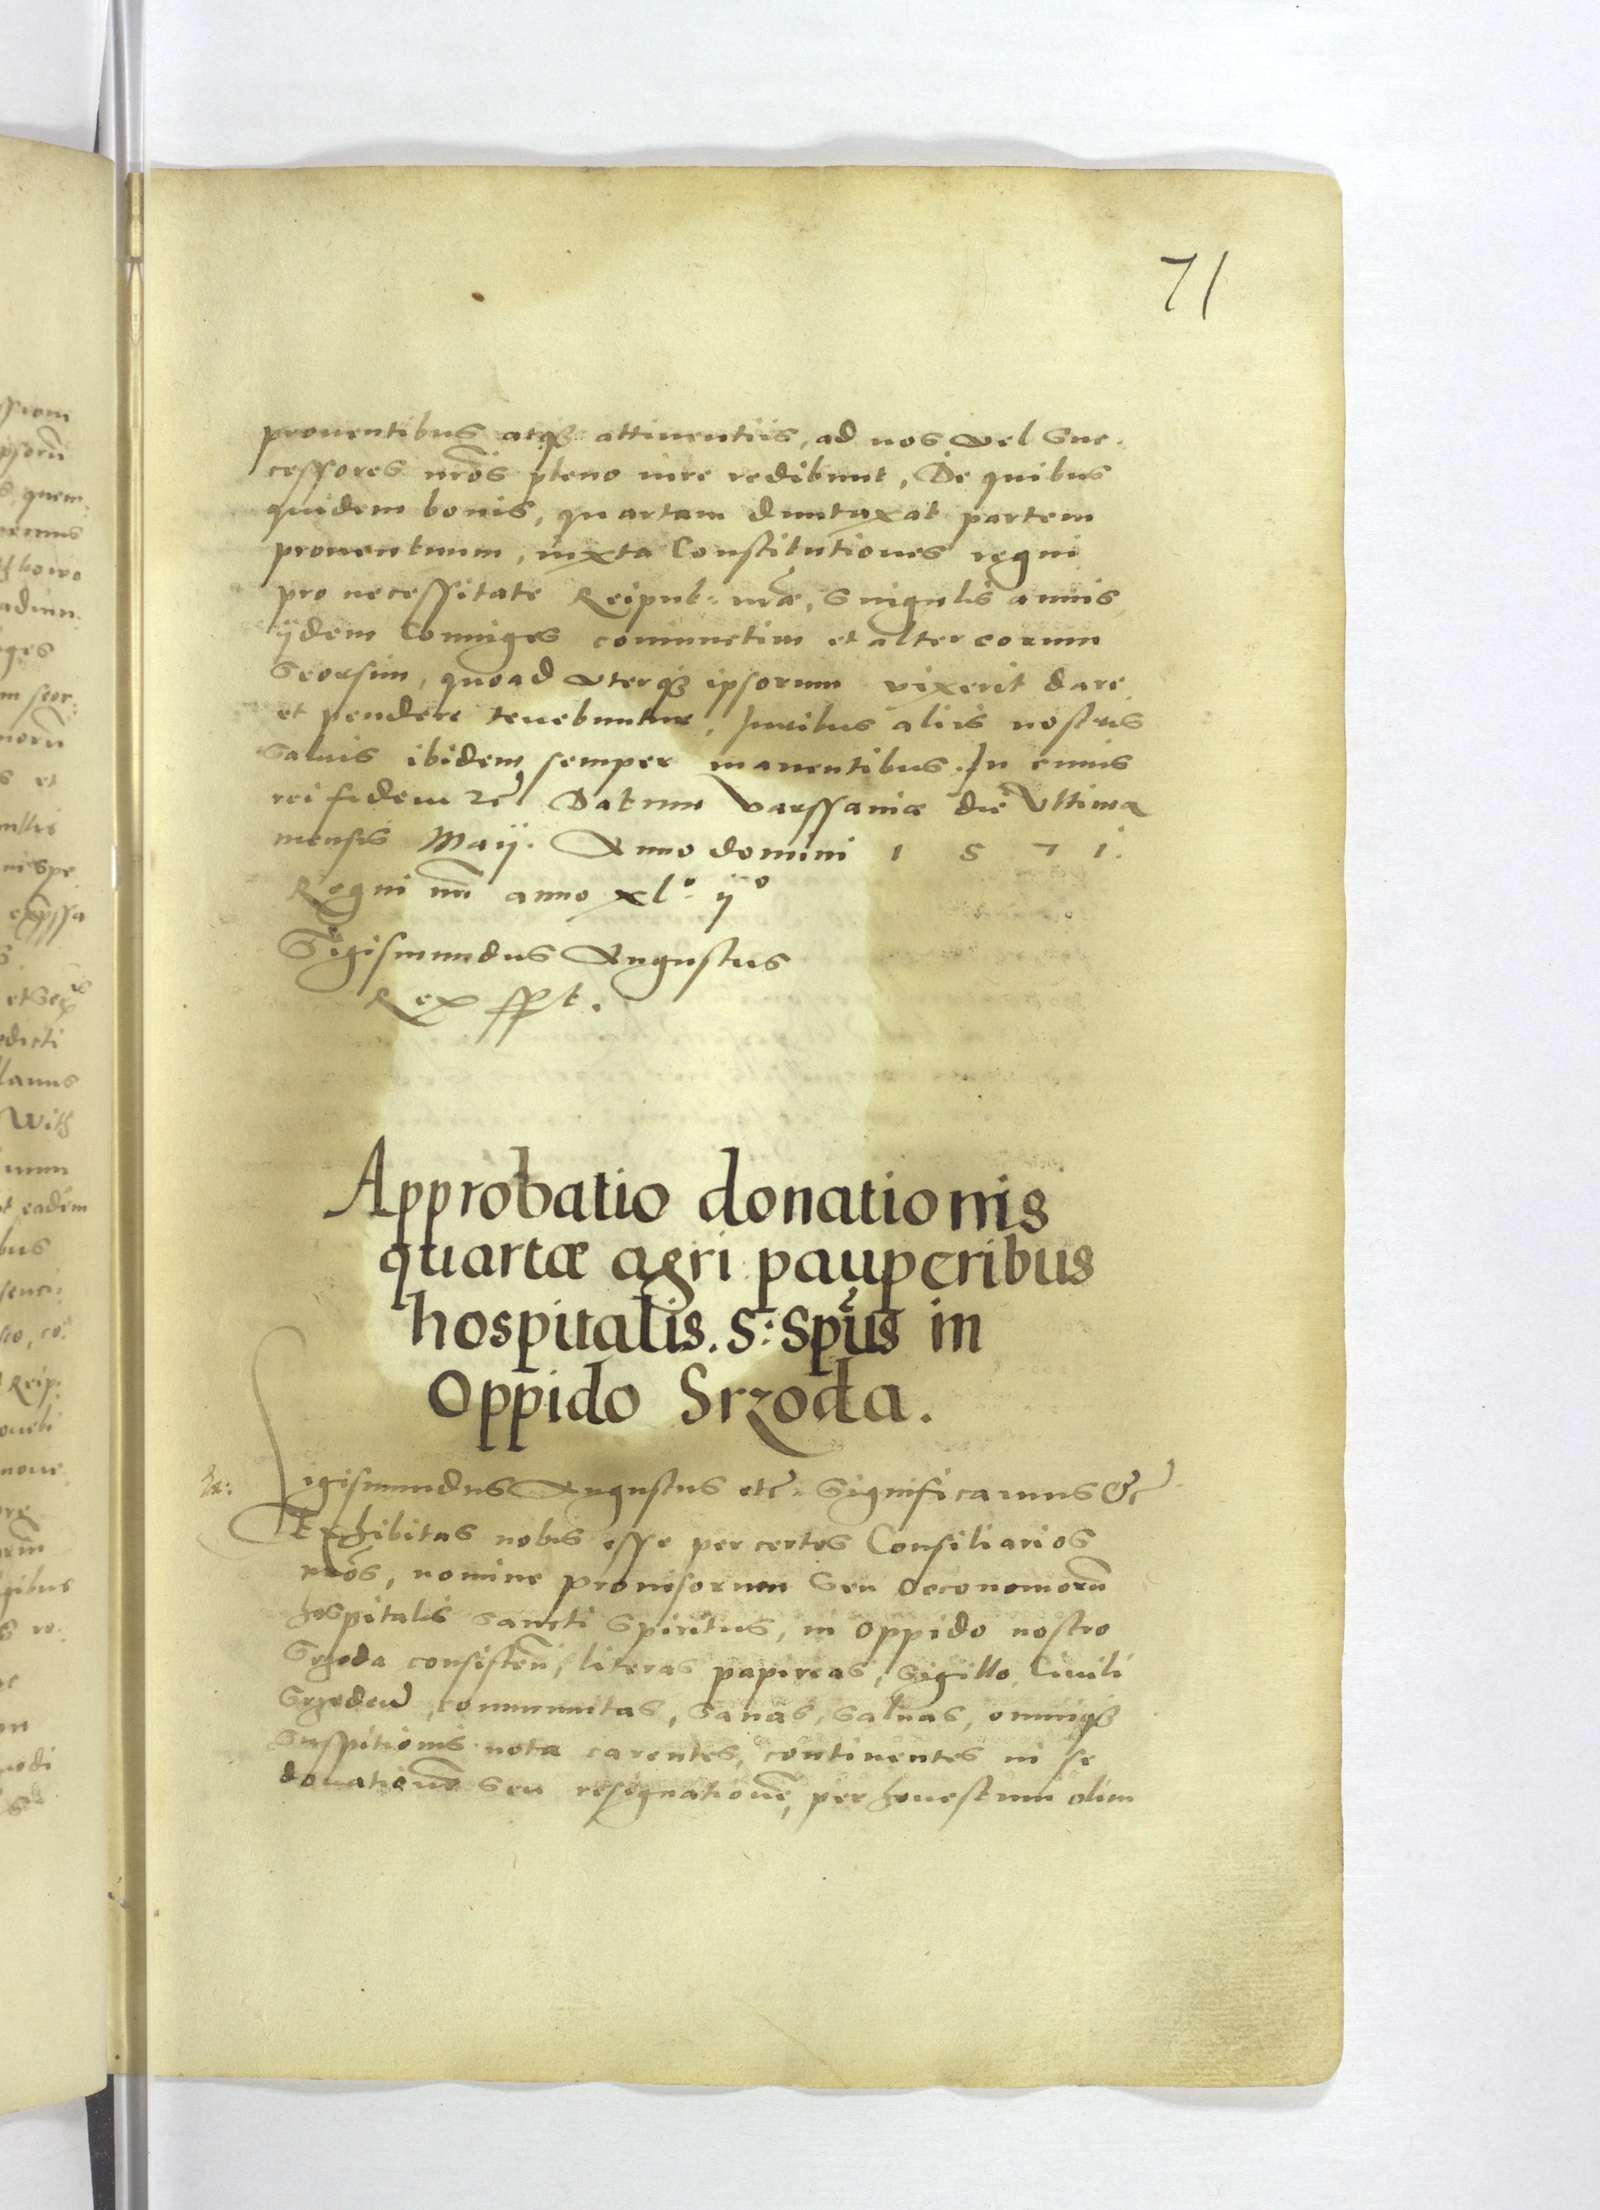 71
prouentibus atq3 attinentiis, ad nos vel Suc-
cessores nr̃os pleno iure redibunt, De quibus
quidem bonis, quartam duntaxat partem
prouentuum, iuxta Constitutiones regni
pro necessitate Reipub: nr̃æ, singulis annis
ijdem Coniuges coniunctim et alter eorum
Seorsim, quoad vterq3 ipsorum vixerit dare
et pendere tenebuntur, Iuribus aliis nostris
saluis ibidem semper manentibus. In cuius
rei fidem etc̃ Datum Varssauiæ die Vltima
mensis Maij. Anno domini 1 5 7 1.
Regni nr̃i anno xl.º ijº
Sigismundus Augustus
Rex sspt.
Approbatio donationis
quartæ agri pauperibus
hospitalis. S: Spũs in
Oppido Srzoda.
Sigismundus Augustus etc̃. Significamus &c̃
Exhibitas nobis esse per certos Consiliarios
nr̃os, nomine prouisorum seu oeconomorũ
hospitalis sancti Spiritus, in oppido nostro
Srzoda consisteñ, literas papireas, sigillo Ciuili
Srzedeñ communitas, sanas, saluas, omniq3
suspitionis nota carentes, continentes in se
donationẽ seu resignationẽ, per honestum olim